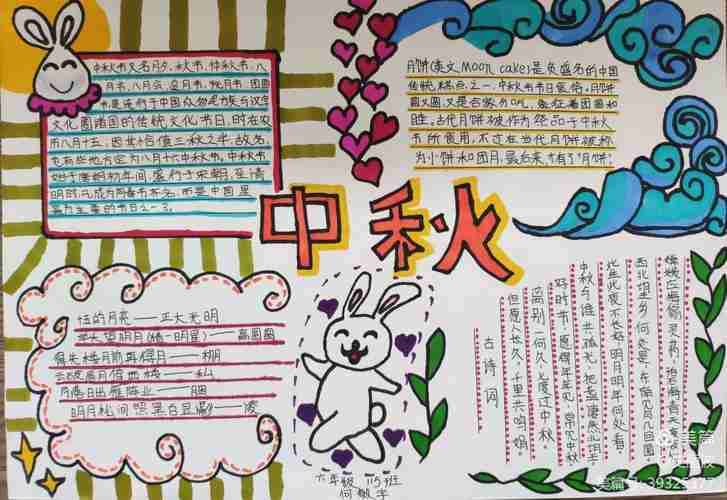 中秋节又名月夕、秋节、仲秋节、八
月节、八月会、追月节、玩月节、团圆
节，是流行于中国众多民族与汉字
文化圈诸国的传统文化节日，时在农
历八月十五，因其恰值三秋之半，故名，
也有些地方定为八月十六中秋节。中秋节
始于唐朝初年间，盛行于宋朝，至清
明时，已成为与春节齐名，而是中国是
最为主要的节日之一了。
月饼(英文Moon cake)是负盛名的中国
传统糕点之一，中秋节节日食俗，月饼
圆又圆，又是合家分吃，象征着团圆和
睦，古代月饼被作为祭品于中秋
节所食用，
为小饼和团月，最后来才有了"月饼"！
中秋
——正大光明
——高圆圆
得月——棚
云破层月倚西楼——私
月落日出雁阵业——胭
古诗词
但愿人长久，千里共婵娟。
离别一何久，七度过中秋
好时节，愿得年年，常见中秋
中秋谁与共孤光，把盏凄然北望。
此生此夜不长好，明月明年何处看。
西北望乡何处是，东南见月几回圆。
嫦娥应悔偷灵药，碧海青天夜夜心
六年级 115班
何敏宇
美篇
美篇号:39329177